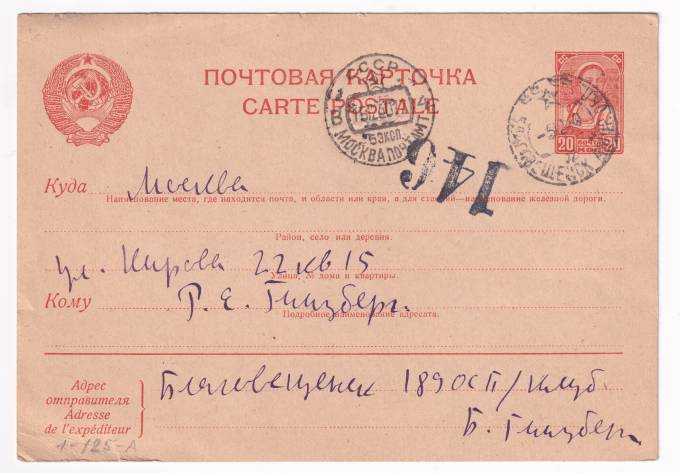 ПОЧТОВАЯ КАРТОЧКА
CARTE POSTALE
СССР
МОСКВА ПОЧТАМТ
20 ПОЧТА 20
КОП
146
Куда Москва
Наименование места, где находится почта, и области или края, а для станций—наименование железной дороги.
Район, село или деревня.
ул. Кирова 22 кв 15
Улица, № дома и квартиры.
Кому Р. Е. Гинзберг.
Подробное наименование адресата.
Адрес
отправителя
Adresse
de l'expéditeur
Благовещенск 189 ОСП/клуб.
Б. Гинзберг
1-125-А